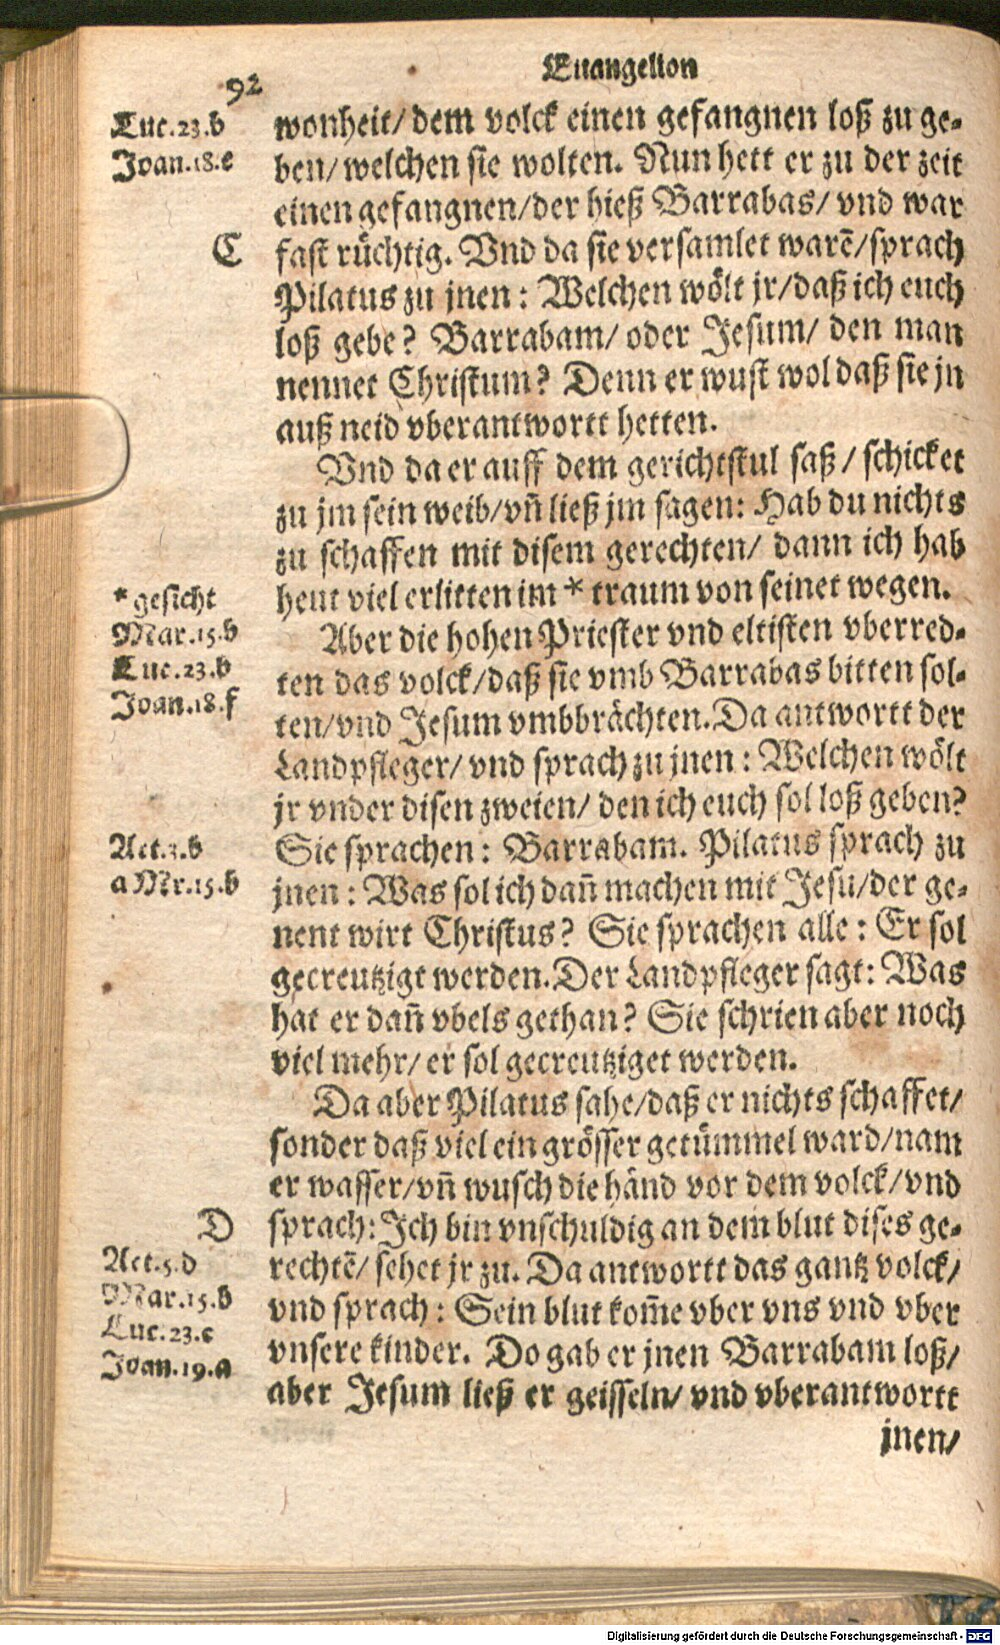 92
Euangelion
Luc.23.b
Joan.18.e
wonheit/ dem volck einen gefangnen loß zu ge-
ben/ welchen sie wolten. Nun hett er zu der zeit
einen gefangnen/der hieß Barrabas/ vnd war
C
fast rüchtig. Vnd da sie versamlet warẽ/sprach
Pilatus zu jnen: Welchen wölt jr/daß ich euch
loß gebe? Barrabam/ oder Jesum/ den man
nennet Christum? Denn er wust wol daß sie jn
auß neid vberantwortt hetten.
Vnd da er auff dem gerichtstul saß/ schicket
zu jm sein weib/vñ ließ jm sagen: Hab du nichts
zu schaffen mit disem gerechten/ dann ich hab
heut viel erlitten im * traum von seinet wegen.
* gesicht
Mar.15.b
Luc.23.b
Joan.18.f
Aber die hohen Priester vnd eltisten vberred-
ten das volck/daß sie vmb Barrabas bitten sol-
ten/vnd Jesum vmbbrächten. Da antwortt der
Landpfleger/ vnd sprach zu jnen: Welchen wölt
jr vnder disen zweien/ den ich euch sol loß geben?
Act.3.b
a Mr.15.b
Sie sprachen: Barrabam. Pilatus sprach zu
jnen: Was sol ich dañ machen mit Jesu/der ge-
nent wirt Christus? Sie sprachen alle: Er sol
gecreutzigt werden. Der Landpfleger sagt: Was
hat er dañ vbels gethan? Sie schrien aber noch
viel mehr/ er sol gecreutziget werden.
Da aber Pilatus sahe/daß er nichts schaffet/
sonder daß viel ein grösser getümmel ward/nam
er wasser/vñ wusch die händ vor dem volck/vnd
D
sprach: Ich bin vnschuldig an dem blut dises ge-
Act.5.d
Mar.15.b
Luc.23.c
Joan.19.a
rechtẽ/ sehet jr zu. Da antwortt das gantz volck/
vnd sprach: Sein blut kom̃e vber vns vnd vber
vnsere kinder. Do gab er jnen Barrabam loß/
aber Jesum ließ er geisseln/ vnd vberantwortt
jnen/
Digitalisierung gefördert durch die Deutsche Forschungsgemeinschaft - DFG